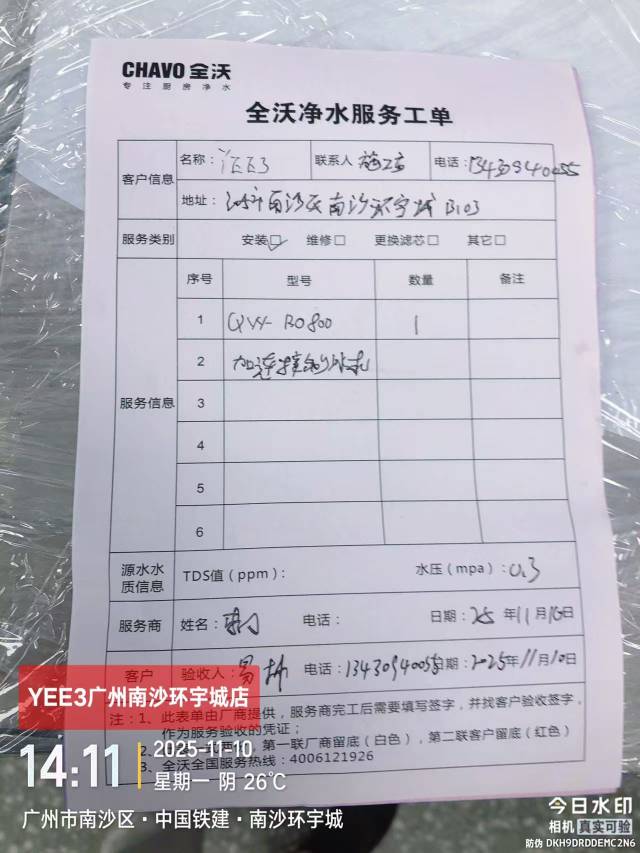 CHAVO 全沃
专注厨房净水
全沃净水服务工单
客户信息 名称：YEE3 联系人 施工方 电话：13430940055
地址： 南沙区南沙环宇城 B103
服务类别 安装☑ 维修□ 更换滤芯□ 其它□
服务信息 序号 型号 数量 备注
1 RO800 1
2
3
4
5
6
源水水质信息 TDS值（ppm）： 水压（mpa）：0.3
服务商 姓名： 电话： 日期：25 年11月10日
客户 验收人：易 电话：13430940055 日期：2025年11月10日
注：1、此表单由厂商提供，服务商完工后需要填写签字，并找客户验收签字，
作为服务验收的凭证；
第一联厂商留底（白色），第二联客户留底（红色）
3、全沃全国服务热线：4006121926
YEE3广州南沙环宇城店
14:11 2025-11-10
星期一 阴 26℃
广州市南沙区·中国铁建·南沙环宇城
今日水印
相机 真实可验
防伪 DKH9DRDDEMC2N6